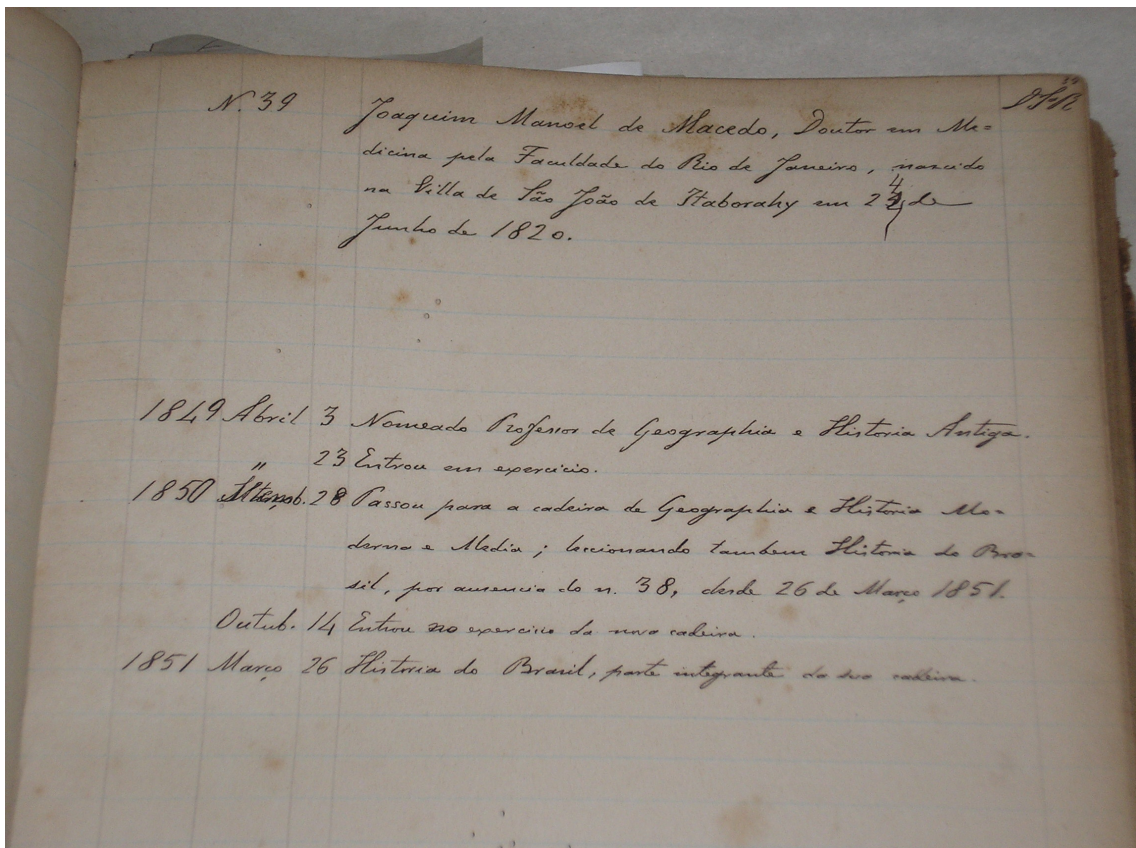 N. 39
Joaquim Manoel de Macedo, Doutor em Me=
dicina pela Faculdade do Rio de Janeiro, nascido
na Villa de São João de Itaborahy em 24 de
Junho de 1820.
1849 Abril 3 Nomeado Professor de Geographia e Historia Antiga.
" 23 Entrou em exercicio.
1850 28 Passou para a cadeira de Geographia e Historia Mo=
derna e Media; leccionando tambem Historia do Bra=
sil, por ausencia do n. 38, desde 26 de Março 1851.
Outub. 14 Entrou no exercicio da nova cadeira.
1851 Março 26 Historia do Brasil, parte integrante da sua cadeira.